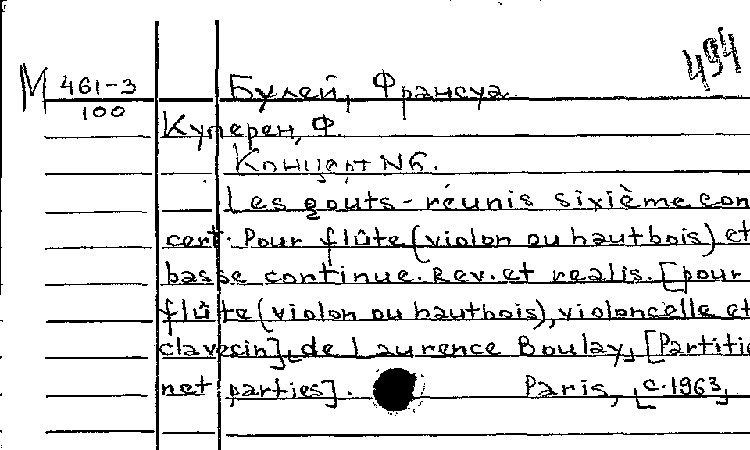 494
М 461-3 Булей, Франсуа
100
Куперен, Ф.
Концерт №6.
Les goûts-réunis sixième con
cert. Pour flûte (violon ou hautbois) et
basse continue. Rev. et realis. [pour
flûte (violon ou hautbois), violoncelle et
clavecin] de Laurence Boulay, [Partitio
net parties]. Paris, [c. 1963]